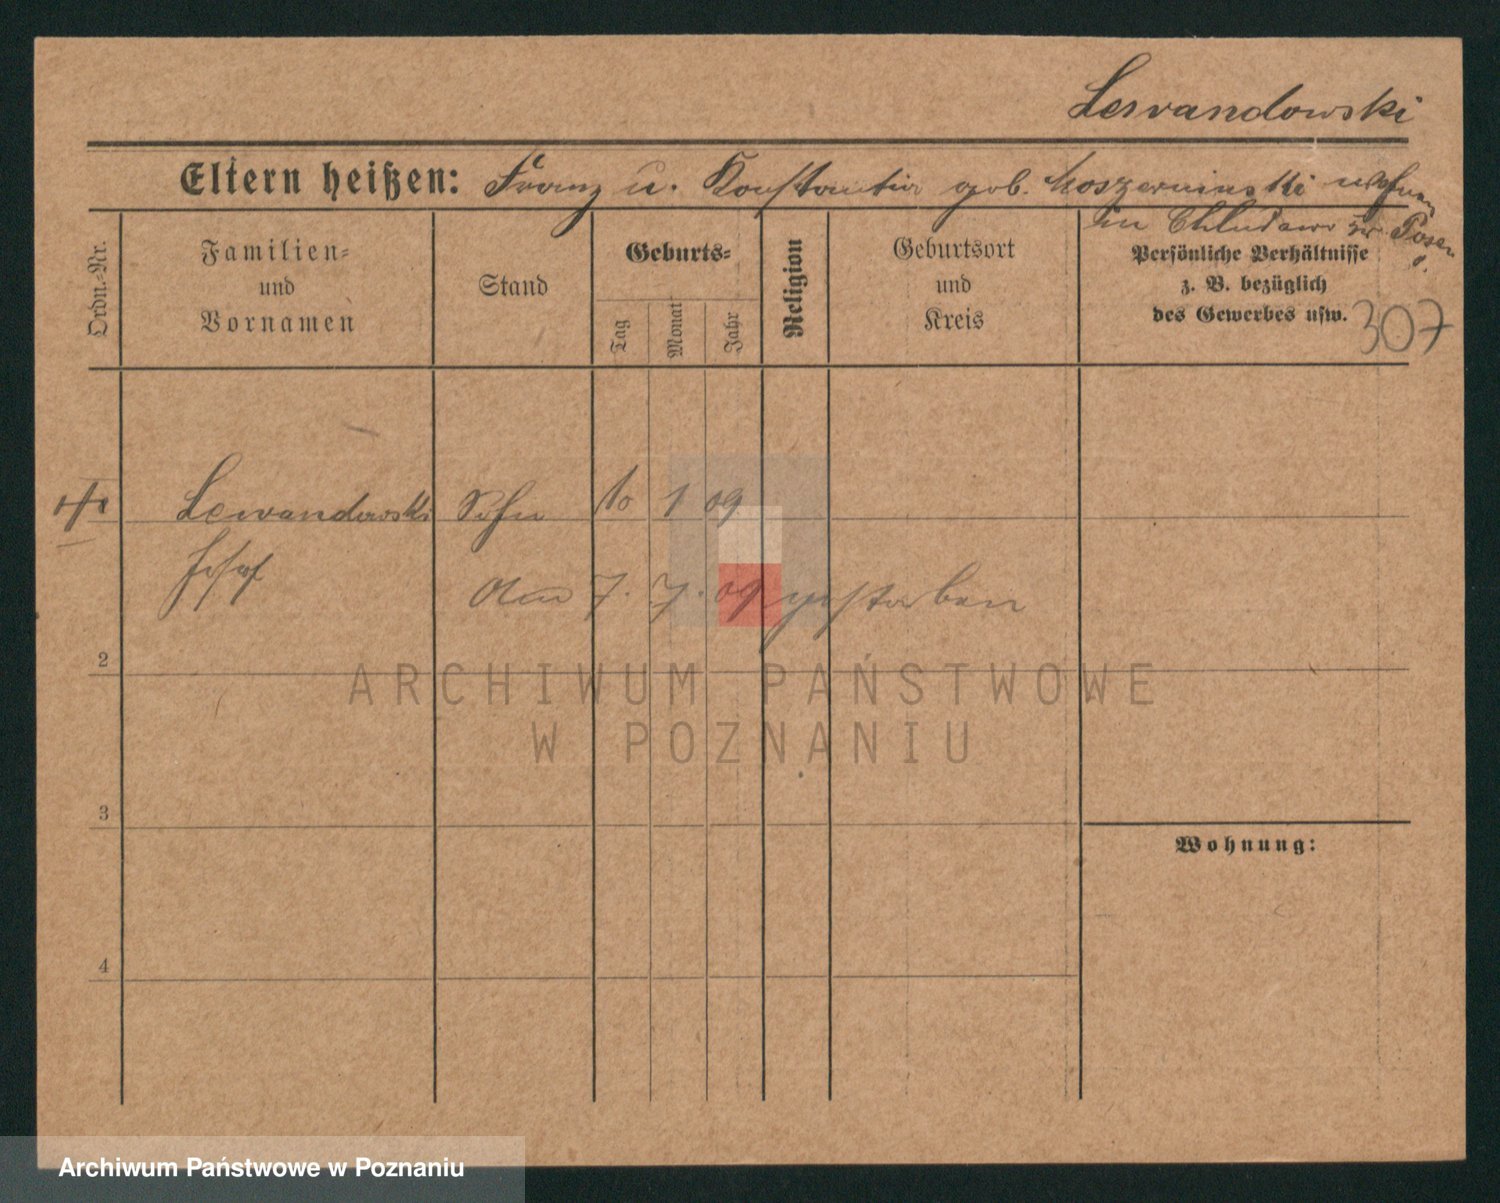 Lewandowski
Eltern heißen: Franz u. Konstantia geb. wohnen
in Chludowo Kr. Posen O.
Ordn.-Nr.
Familien-
und
Vornamen
Stand
Geburts-
Tag
Monat
Jahr
Religion
Geburtsort
und
Kreis
Persönliche Verhältnisse
z. B. bezüglich
des Gewerbes usw.
307
Lewandowski Sohn 10 1 09
Josef
Am 7. 7. 09 gestorben
2
3
4
Wohnung:
ARCHIWUM PAŃSTWOWE
W POZNANIU
Archiwum Państwowe w Poznaniu